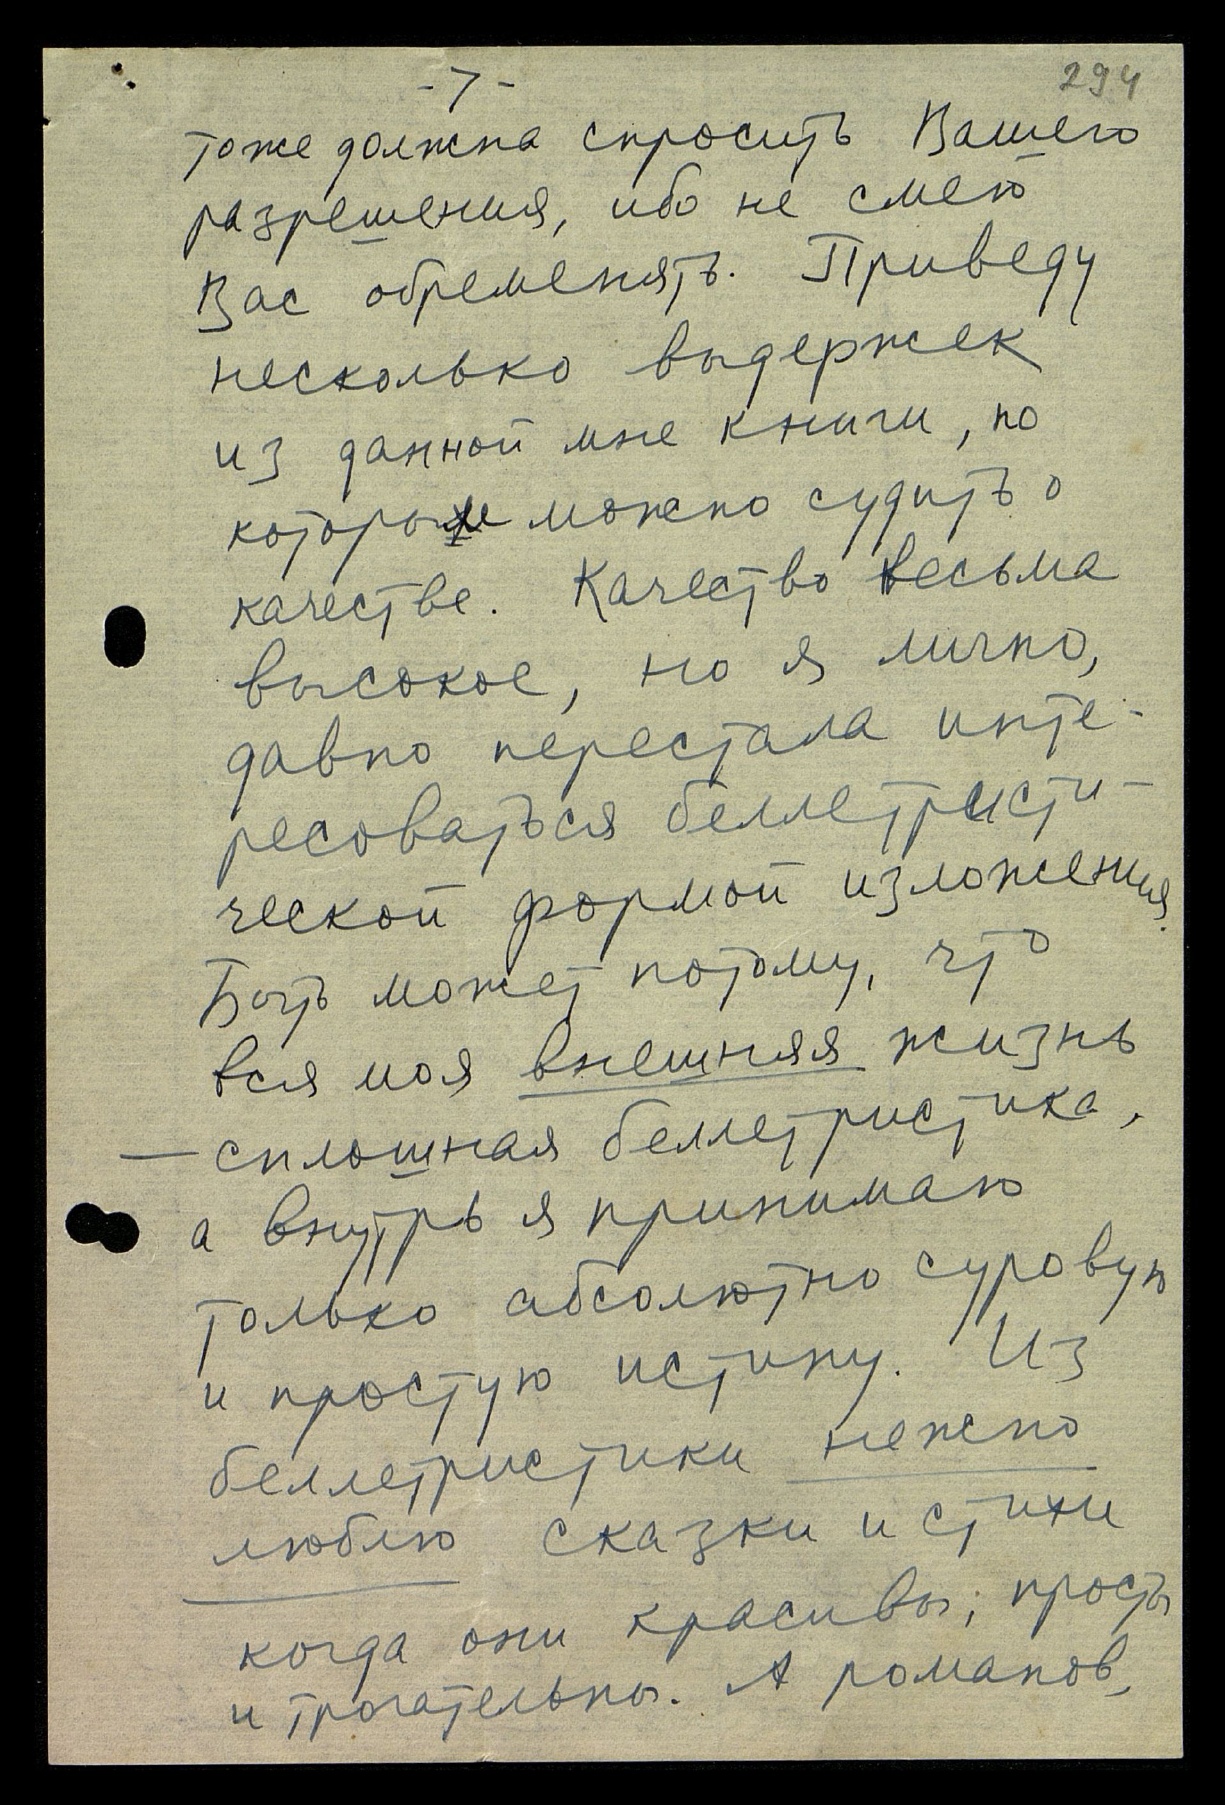 -7-
294
тоже должна спросить Вашего
разрешения, ибо не смею
Вас обременять. Приведу
несколько выдержек
из данной мне книги, по
которым можно судить о
качестве. Качество весьма
высокое, но я лично,
давно перестала инте-
ресоваться беллетристи-
ческой формой изложения.
Быть может потому, что
вся моя внешняя жизнь
— сплошная беллетристика,
а внутрь я принимаю
только абсолютно суровую
и простую истину. Из
беллетристики нежно
люблю сказки и стихи
когда они красивы, просты
и трогательны. А романов,